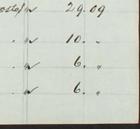 29.09
" 10. "
" 6. "
" 6. "